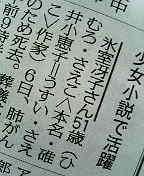 少女小説で活躍
氷室冴子さん51歳(ひ
むろ・さえこ=本名・碓
井小恵子=うすい・さえ
こ)作家 6日、肺がん
のため死去
前9時